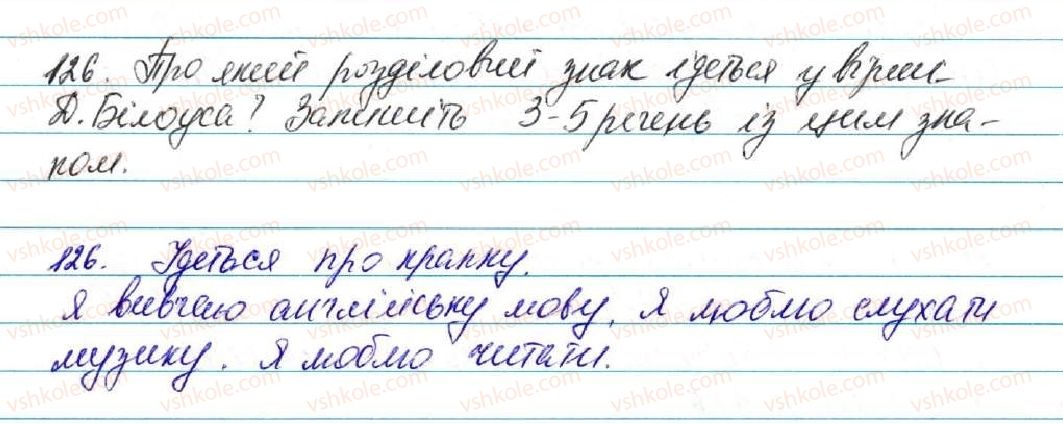 126. Про який розділовий знак ідеться у вірші
Д. Білоуса? Запишіть 3-5 речень із цим зна-
ком.
126. Ідеться про крапку.
Я вивчаю англійську мову. Я люблю слухати
музику. Я люблю читати.